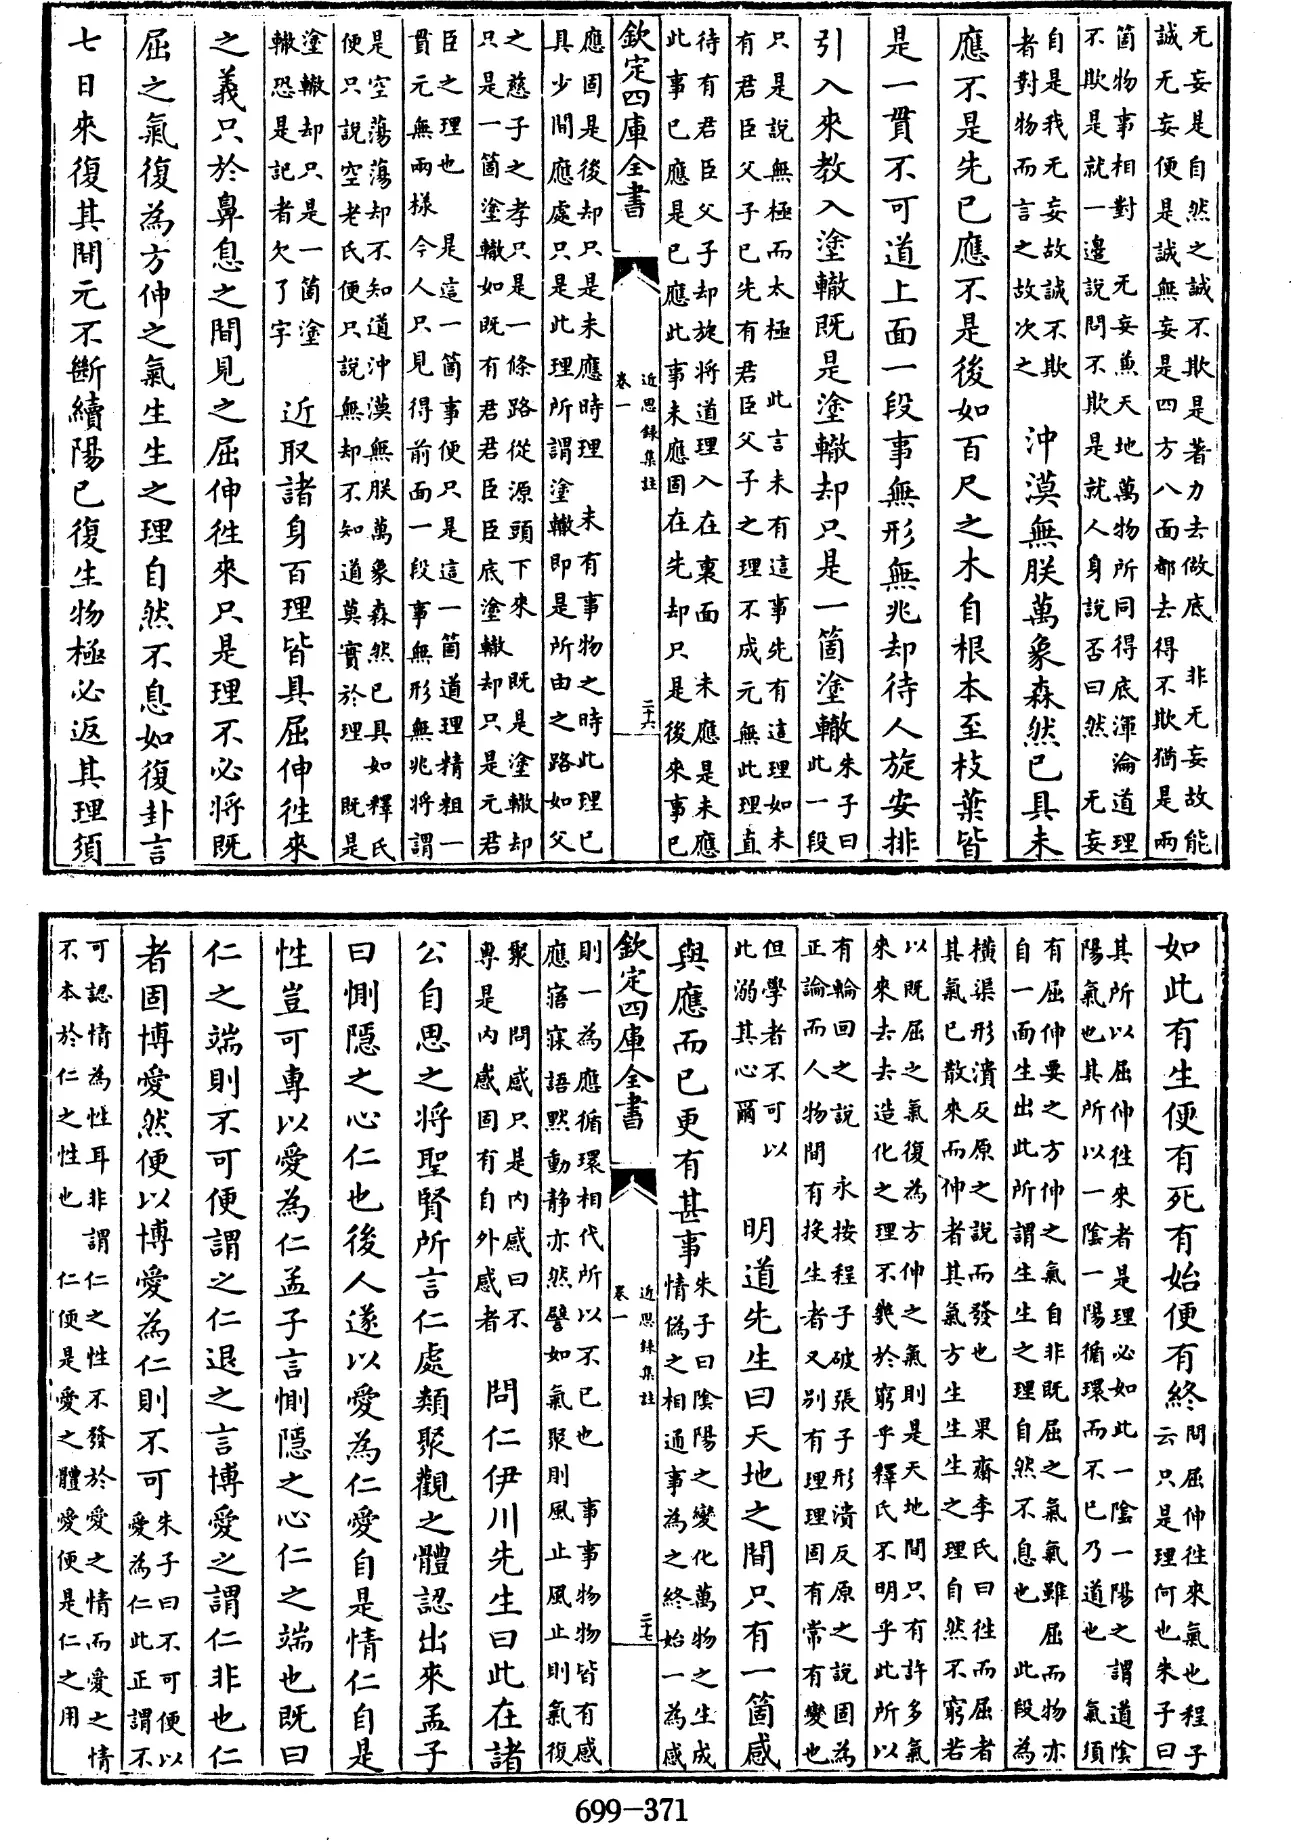 无妄是自然之誠不欺是著力去做底 非无妄故能
誠无妄便是誠無妄是四方八面都去得不欺猶是兩
箇物事相對 无妄兼天地萬物所同得底渾淪道理
不欺是就一邊説問不欺是就人身説否曰然 无妄
自是我无妄故誠不欺
者對物而言之故次之
沖漠無朕萬象森然已具未
應不是先已應不是後如百尺之木自根本至枝葉皆
是一貫不可道上面一段事無形無兆却待人旋安排
引入來教入塗轍既是塗轍却只是一箇塗轍
朱子曰
此一段
只是説無極而太極 此言未有這事先有這理如未
有君臣父子已先有君臣父子之理不成元無此理直
待有君臣父子却旋將道理入在裏面 未應是未應
此事已應是已應此事未應固在先却只是後來事已
欽定四庫全書
近思錄集註
卷一
二十六
應固是後却只是未應時理 未有事物之時此理已
具少間應處只是此理所謂塗轍即是所由之路如父
之慈子之孝只是一條路從源頭下來 既是塗轍却
只是一箇塗轍如既有君君臣臣底塗轍却只是元君
臣之理也 是這一箇事便只是這一箇道理精粗一
貫元無兩樣今人只見得前面一段事無形無兆將謂
是空蕩蕩却不知道沖漠無朕萬象森然已具如釋氏
便只説空老氏便只説無却不知道莫實於理 既是
塗轍却只是一箇塗
轍恐是記者欠了字
近取諸身百理皆具屈伸徃來
之義只於鼻息之間見之屈伸徃來只是理不必將既
屈之氣復為方伸之氣生生之理自然不息如復卦言
七日來復其間元不斷續陽已復生物極必返其理須
如此有生便有死有始便有終
問屈伸徃來氣也程子
云只是理何也朱子曰
其所以屈伸徃來者是理必如此一陰一陽之謂道陰
陽氣也其所以一陰一陽循環而不已乃道也 氣須
有屈伸要之方伸之氣自非既屈之氣氣雖屈而物亦
自一面生出此所謂生生之理自然不息也 此段為
橫渠形潰反原之説而發也 果齋李氏曰徃而屈者
其氣已散來而伸者其氣方生生生之理自然不窮若
以既屈之氣復為方伸之氣則是天地間只有許多氣
來來去去造化之理不幾於窮乎釋氏不明乎此所以
有輪回之説 永按程子破張子形潰反原之説固為
正論而人物間有挨生者又別有理理固有常有變也
但學者不可以
此溺其心爾
明道先生曰天地之間只有一箇感
與應而已更有甚事
朱子曰陰陽之變化萬物之生成
情偽之相通事為之終始一為感
欽定四庫全書
近思錄集註
卷一
二十七
則一為應循環相代所以不已也 事事物物皆有感
應寤寐語黙動静亦然譬如氣聚則風止風止則氣復
聚 問感只是内感曰不
專是内感固有自外感者
問仁伊川先生曰此在諸
公自思之將聖賢所言仁處類聚觀之體認出來孟子
曰惻隱之心仁也後人遂以愛為仁愛自是情仁自是
性豈可専以愛為仁孟子言惻隱之心仁之端也既曰
仁之端則不可便謂之仁退之言博愛之謂仁非也仁
者固博愛然便以博愛為仁則不可
朱子曰不可便以
愛為仁此正謂不
可認情為性耳非謂仁之性不發於愛之情而愛之情
不本於仁之性也 仁便是愛之體愛便是仁之用
699-371